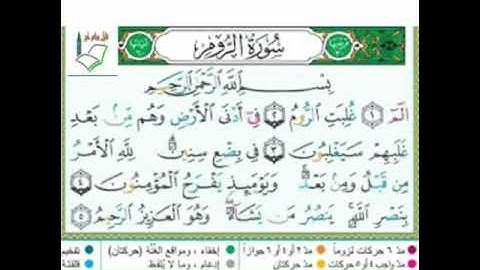 سُورَةُ الرُّومِ
بِسْمِ اللَّهِ الرَّحْمَٰنِ الرَّحِيمِ
الٓمٓ ١ غُلِبَتِ الرُّومُ ٢ فِىٓ أَدْنَى الْأَرْضِ وَهُم مِّنۢ بَعْدِ
غَلَبِهِمْ سَيَغْلِبُونَ ٣ فِى بِضْعِ سِنِينَ ۗ لِلَّهِ الْأَمْرُ
مِن قَبْلُ وَمِنۢ بَعْدُ ۚ وَيَوْمَئِذٍ يَفْرَحُ الْمُؤْمِنُونَ ٤
بِنَصْرِ اللَّهِ ۚ يَنصُرُ مَن يَشَآءُ ۖ وَهُوَ الْعَزِيزُ الرَّحِيمُ ٥
مدّ ٦ حركات لزوماً مدّ ٢ أو ٤ أو ٦ جوازاً إخفاء، ومواقع الغُنَّة (حركتان) تفخيم
مدّ واجب ٤ أو ٥ حركات مدّ حركتان إدغام، وما لا يُلفَظ قلقلة